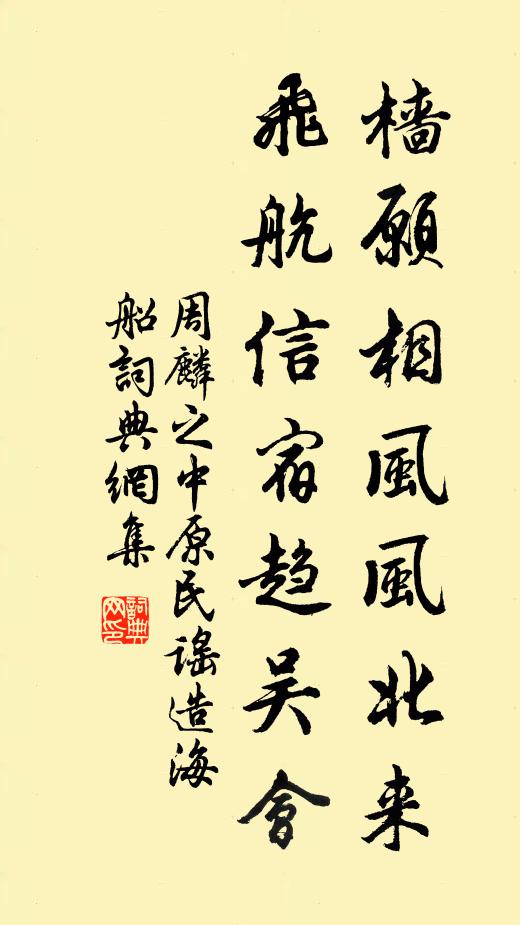 檣願相風風北来
飛航信宿趋吴會
周麟之中原民謡造海
船詞典網集
詞典网印